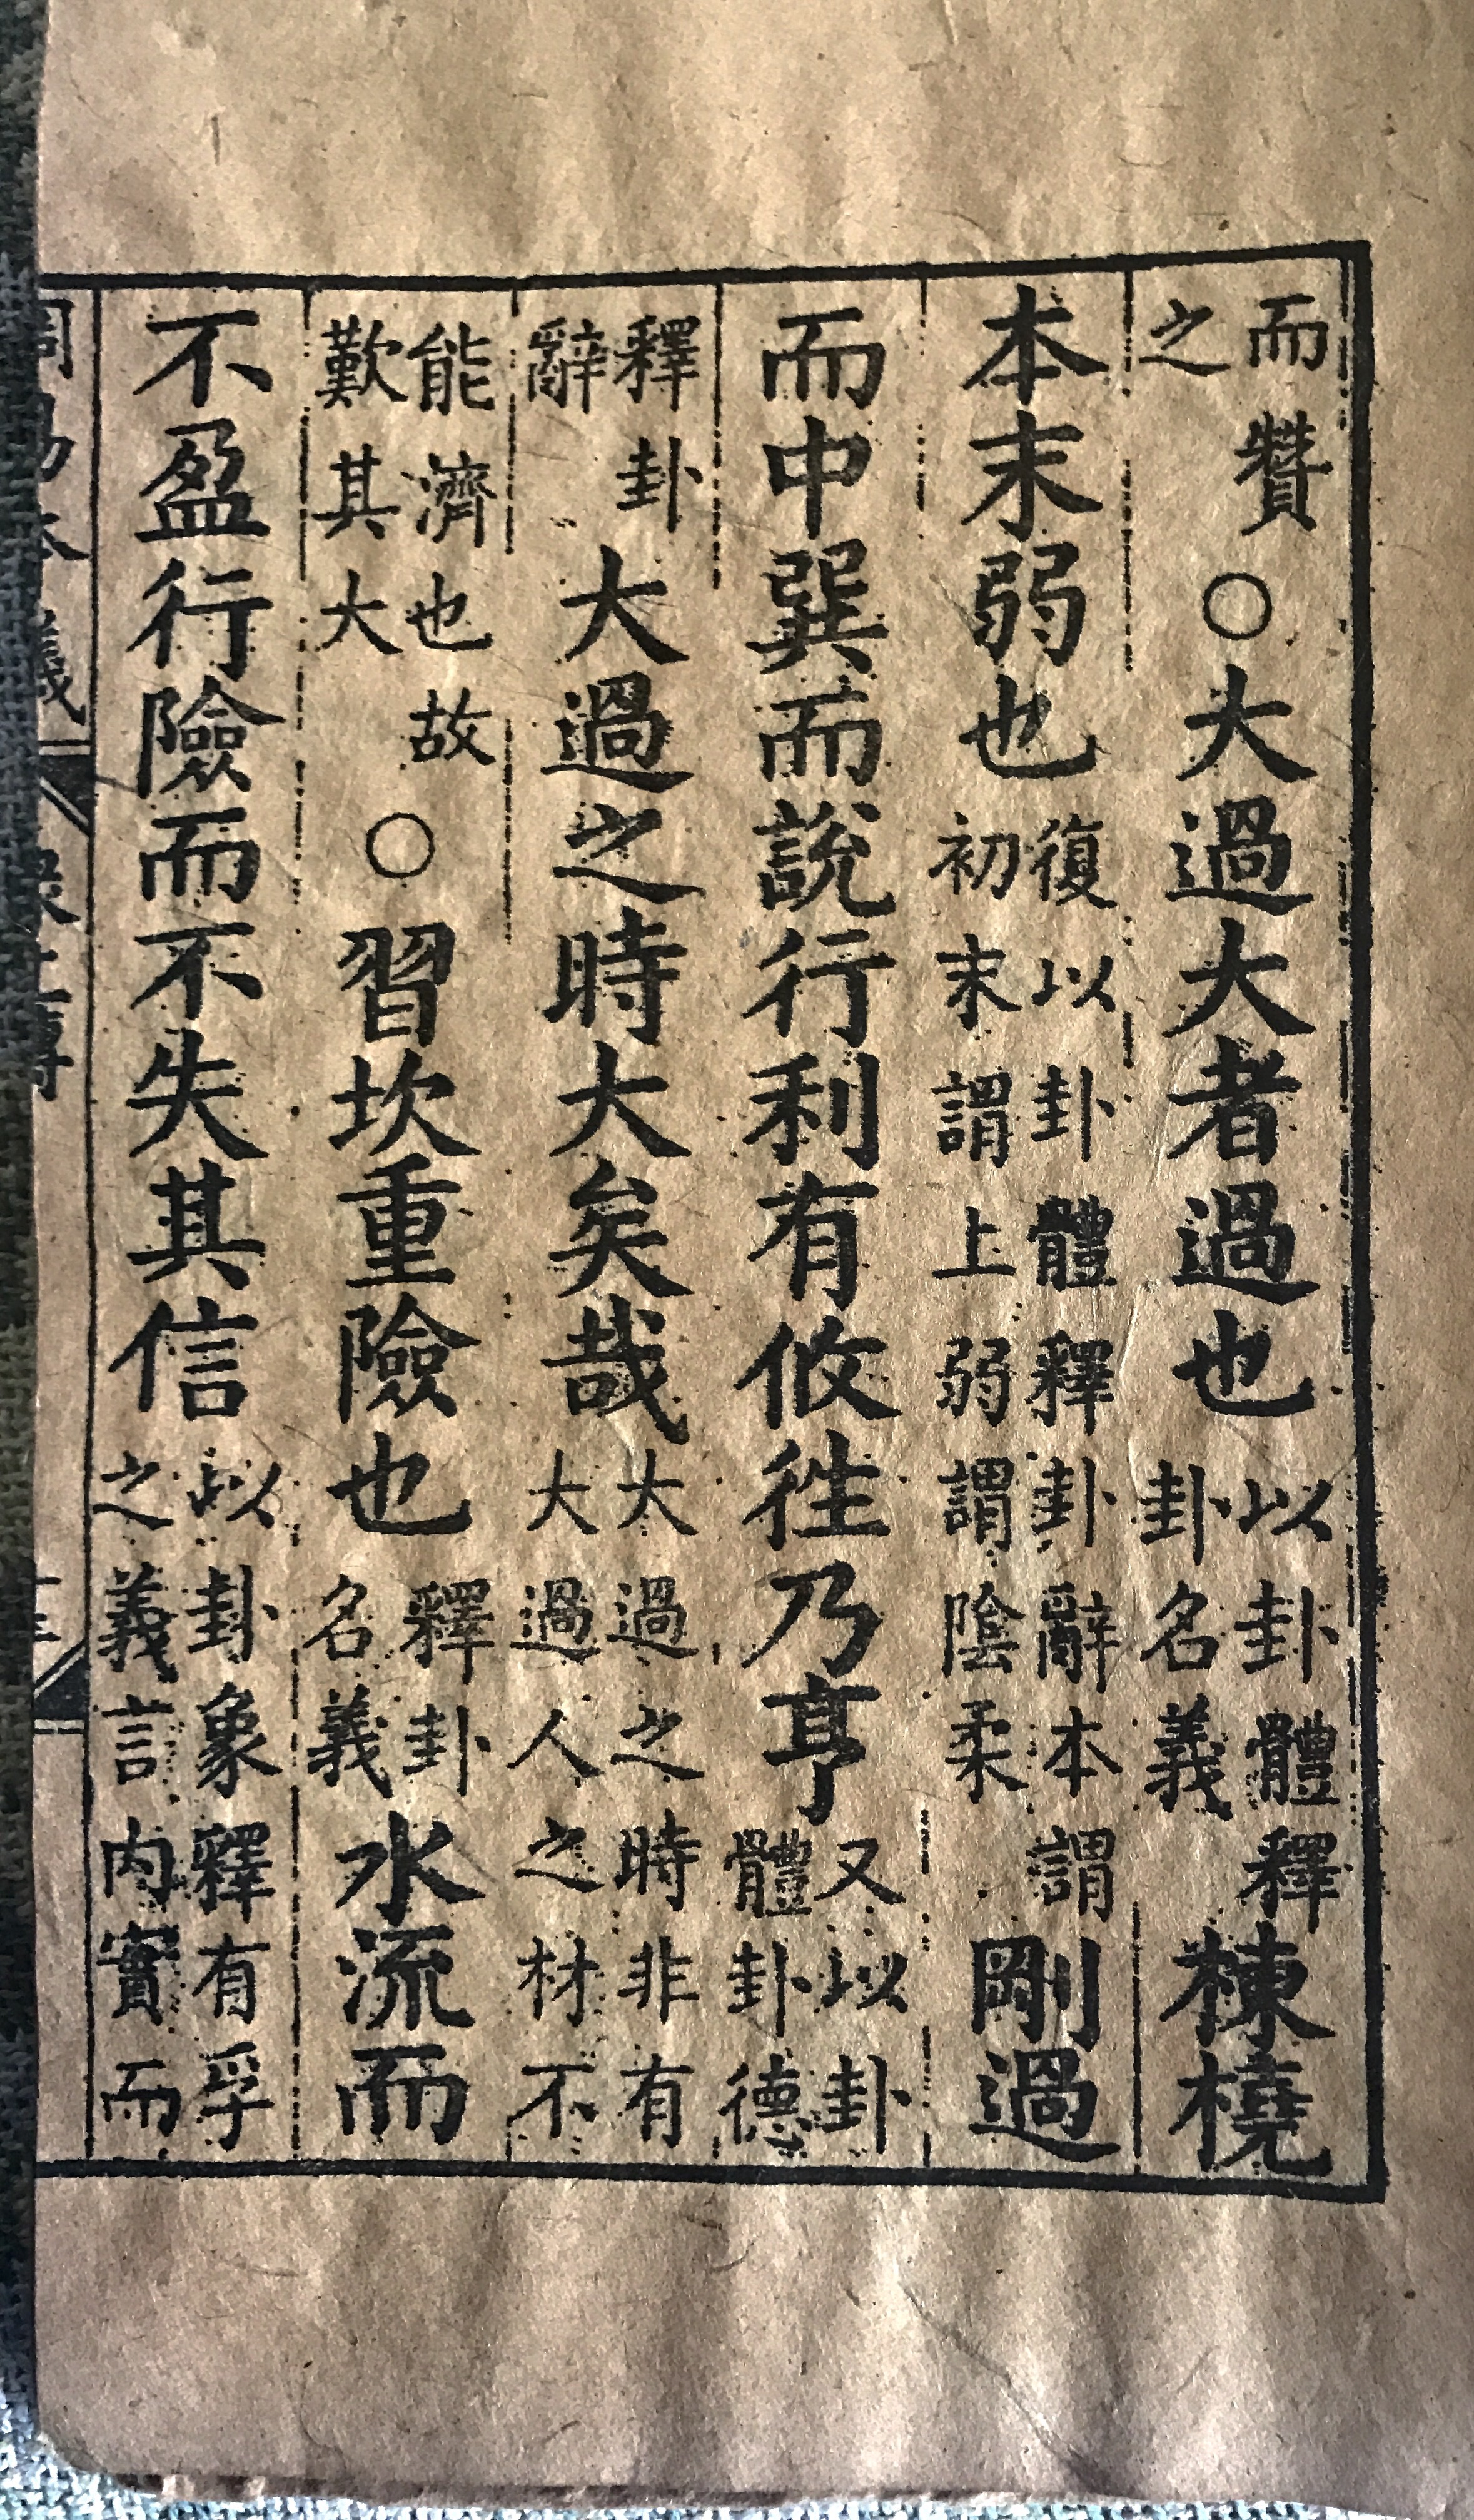 而贊之○大過大者過也以卦體釋卦名義棟橈
本末弱也復以卦體釋卦辭本謂初末謂上弱謂陰柔剛過
而中巽而說行利有攸徃乃亨又以卦體卦德
釋卦辭大過之時大矣哉大過之時非有大過人之材不
能濟也故歎其大○習坎重險也釋卦名義水流而
不盈行險而不失其信以卦象釋有孚之義言內實而